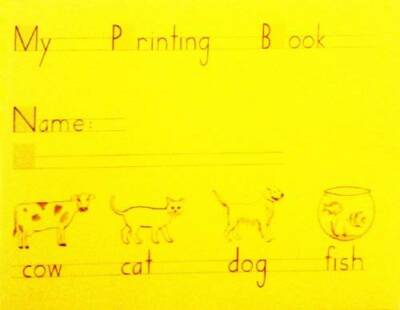 My Printing Book
Name:
cow cat dog fish